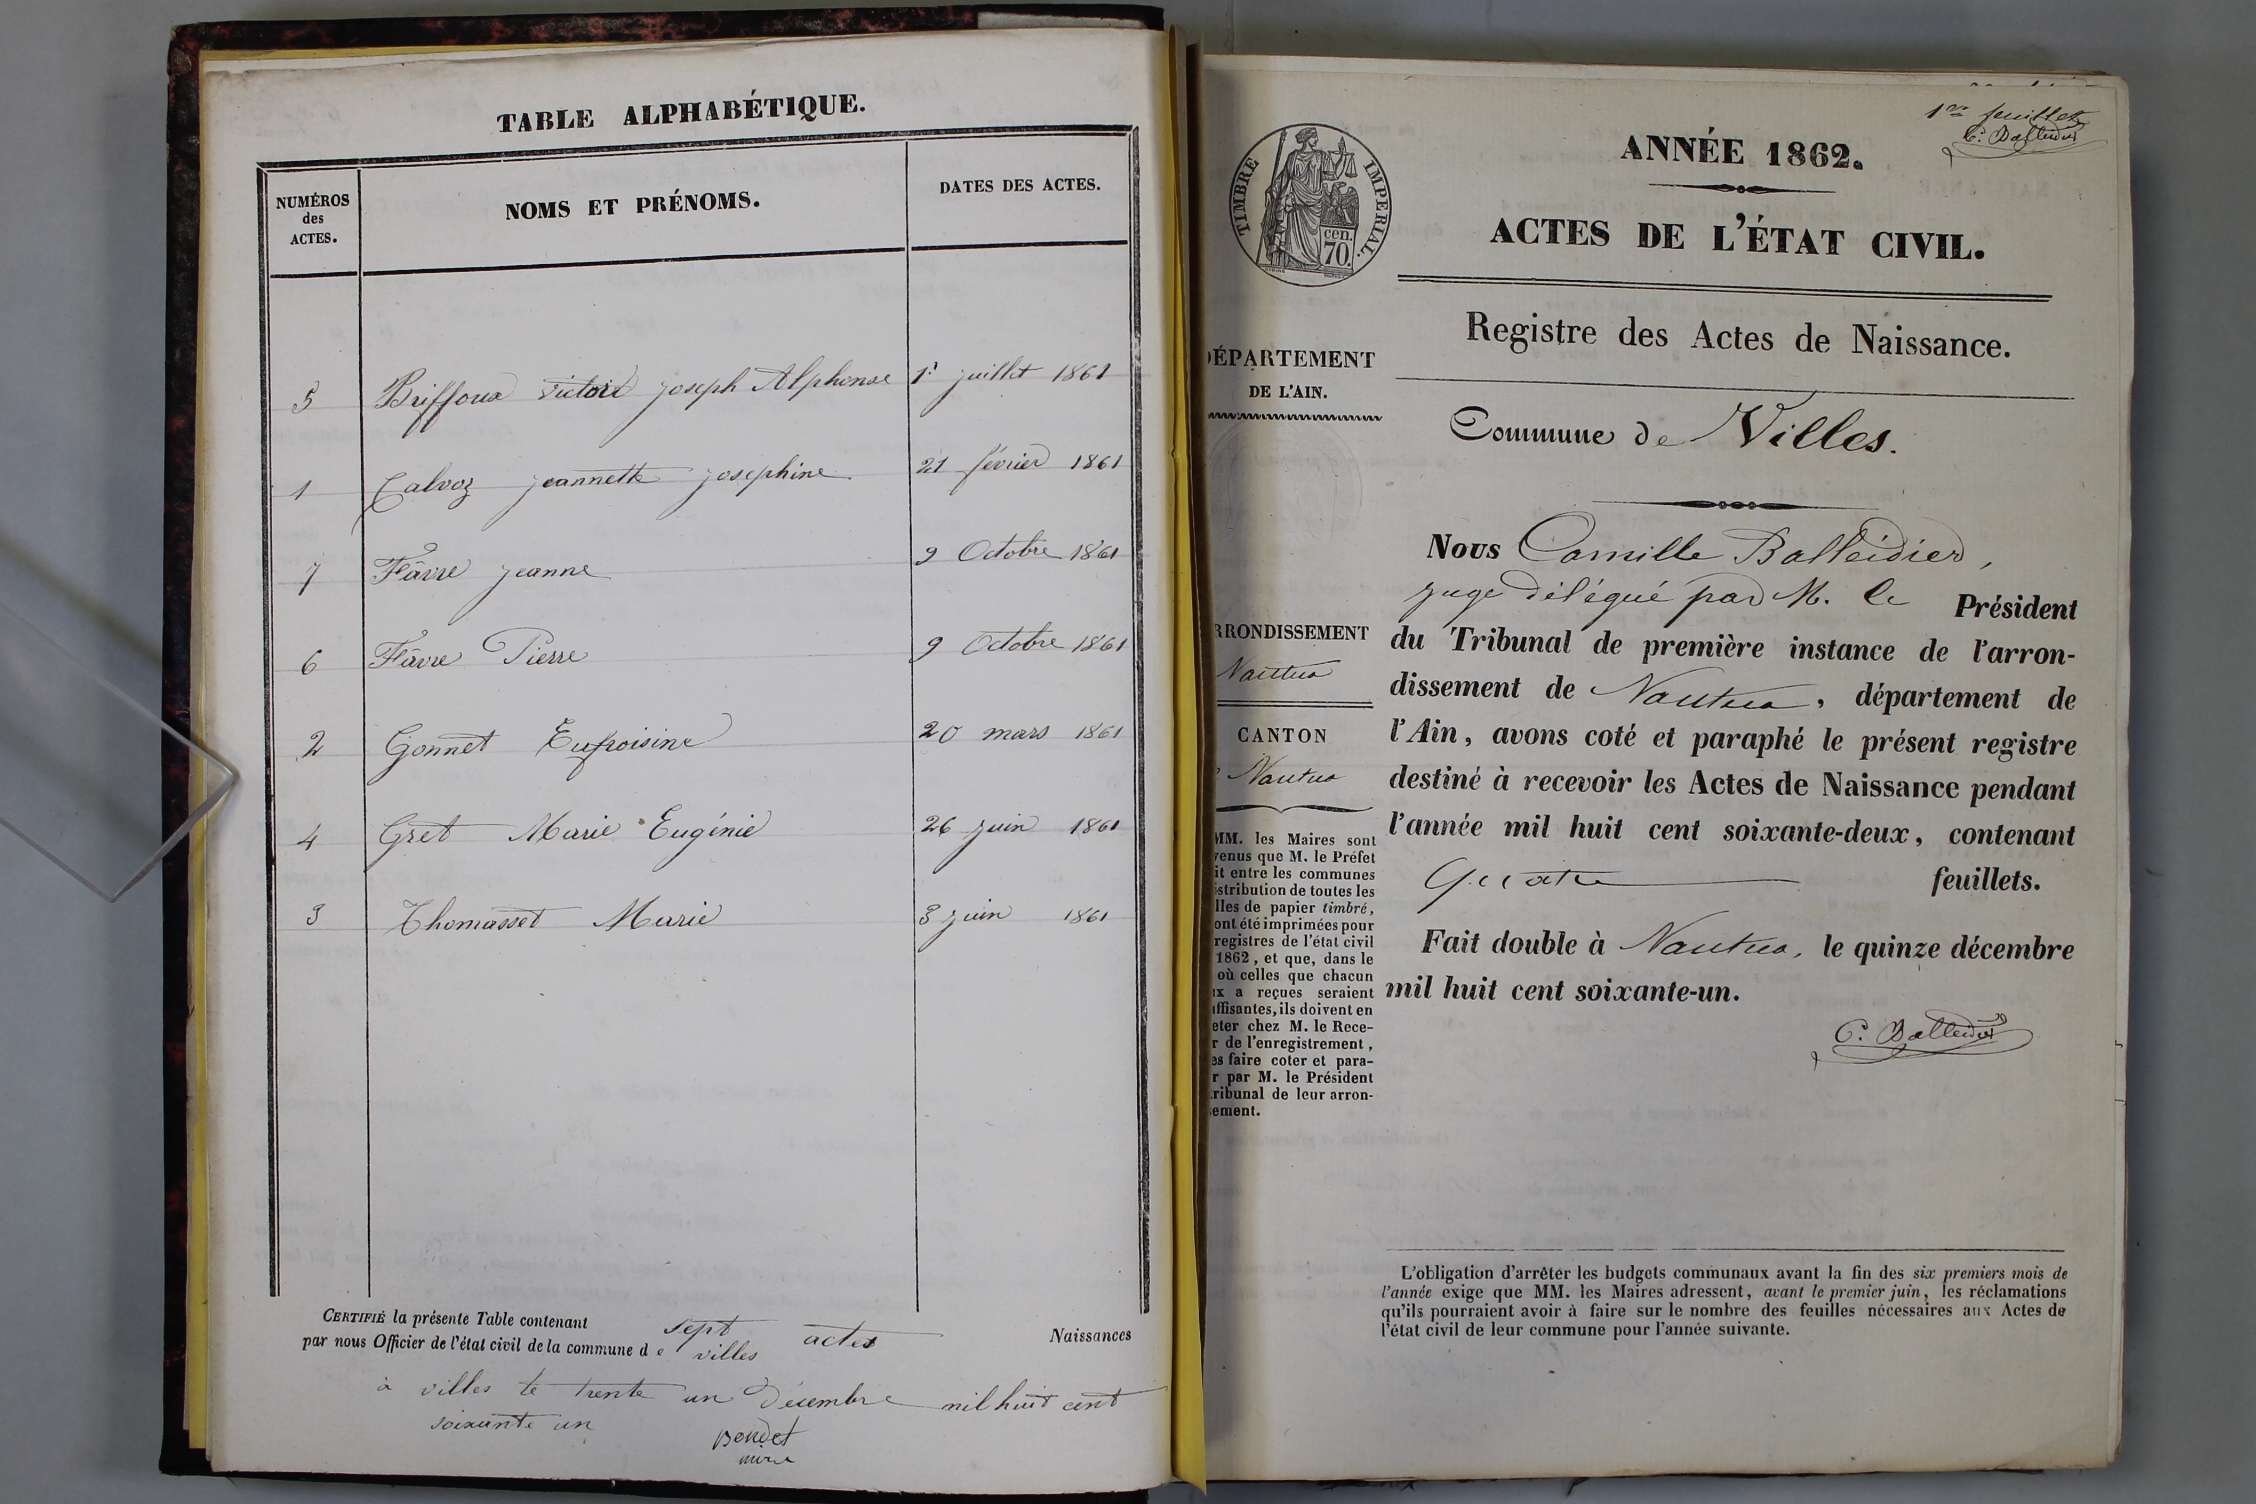 TABLE ALPHABÉTIQUE.
NUMÉROS
des
ACTES.
NOMS ET PRÉNOMS.
DATES DES ACTES.
5 Briffoux victoire joseph Alphonse 1er juillet 1861
1 Calvoz jeannette josephine 21 février 1861
7 Fâvre jeanne 9 Octobre 1861
6 Fâvre Pierre 9 Octobre 1861
2 Gonnet Eufroisine 20 mars 1861
4 Gret Marie Eugénie 26 juin 1861
3 Thomasset Marie 3 juin 1861
CERTIFIÉ la présente Table contenant sept actes Naissances
par nous Officier de l'état civil de la commune de villes
à villes le trente un Décembre mil huit cent
soixante un
Bondet
1re feuillet
C. Balleidier
ANNÉE 1862.
TIMBRE IMPERIAL.
cen.
70.
ACTES DE L'ÉTAT CIVIL.
Registre des Actes de Naissance.
DÉPARTEMENT
DE L'AIN.
Commune de Villes.
Nous Camille Balleidier,
juge délégué par M. le Président
du Tribunal de première instance de l'arron-
dissement de Nantua, département de
l'Ain, avons coté et paraphé le présent registre
destiné à recevoir les Actes de Naissance pendant
l'année mil huit cent soixante-deux, contenant
Quatre feuillets.
Fait double à Nantua, le quinze décembre
mil huit cent soixante-un.
C. Balleidier
RRONDISSEMENT
Nantua
CANTON
Nantua
MM. les Maires sont
venus que M. le Préfet
it entre les communes
istribution de toutes les
lles de papier timbré,
ont été imprimées pour
registres de l'état civil
1862, et que, dans le
où celles que chacun
ux a reçues seraient
uffisantes, ils doivent en
eter chez M. le Rece-
r de l'enregistrement,
es faire coter et para-
r par M. le Président
tribunal de leur arron-
sement.
L'obligation d'arrêter les budgets communaux avant la fin des six premiers mois de
l'année exige que MM. les Maires adressent, avant le premier juin, les réclamations
qu'ils pourraient avoir à faire sur le nombre des feuilles nécessaires aux Actes de
l'état civil de leur commune pour l'année suivante.